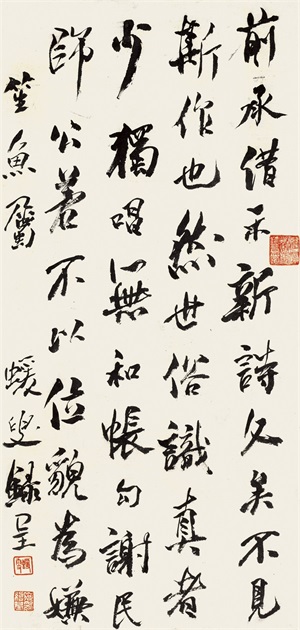 前承借示新詩久矣不見
斯作也然世俗識真者
少獨唱無和帳勾謝民
師公若不以位貌為嫌
笙魚屬 蝯叟錄呈